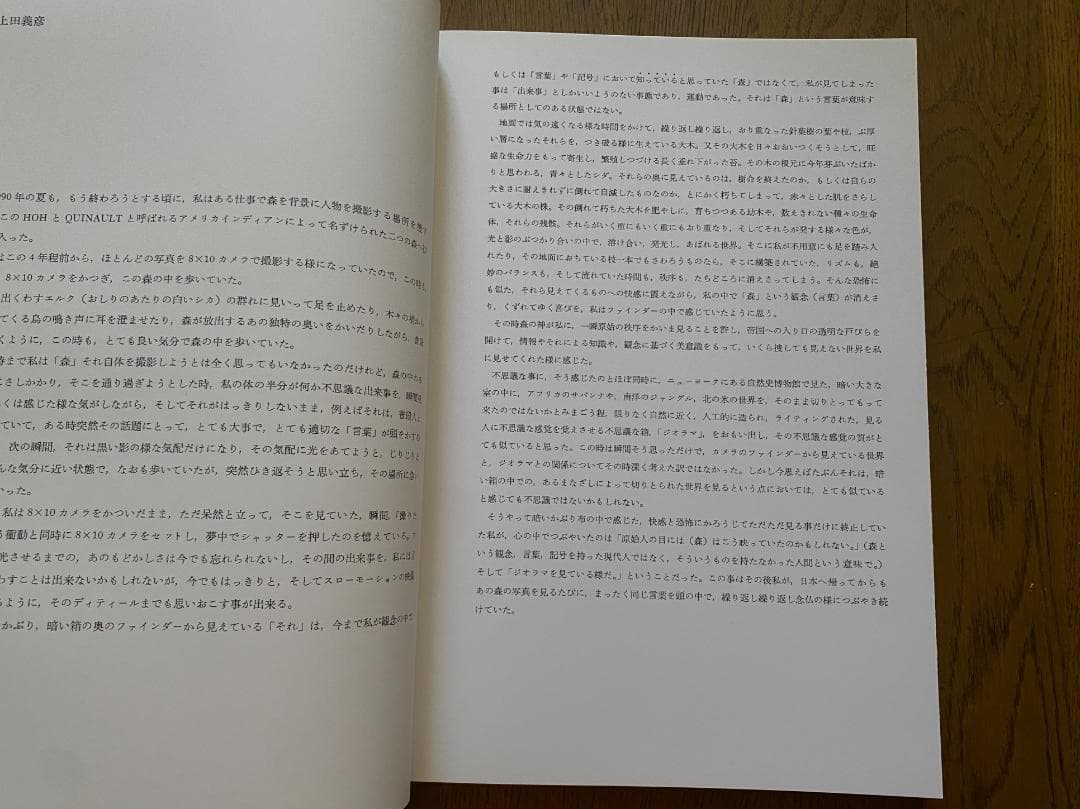 上田義彦
990年の夏も，もう終わろうとする頃に，私はある仕事で森を背景に人物を撮影する場所を捜す
このHOHとQUINAULTと呼ばれるアメリカインディアンによって名ずけられた二つの森へむ
入った。
はこの4年程前から，ほとんどの写真を8×10カメラで撮影する様になっていたので，この時も，
8×10カメラをかつぎ，この森の中を歩いていた。
出くわすエルク（おしりのあたりの白いシカ）の群れに見いって足を止めたり，木々の
てくる鳥の鳴き声に耳を澄ませたり，森が放出するあの独特の臭いをかいだりしながら，
くように，この時も，とても良い気分で森の中を歩いていた。
時まで私は「森」それ自体を撮影しようとは全く思ってもいなかったのだけれど，森の中の
にさしかかり，そこを通り過ぎようとした時，私の体の半分が何か不思議な出来事を，瞬間
くは感じた様な気がしながら，そしてそれがはっきりしないまま，例えばそれは，普段人と
ていて，ある時突然その話題にとって，とても大事で，とても適切な「言葉」が頭をかすめ
次の瞬間，それは黒い影の様な気配だけになり，その気配に光をあてようと，じりじりと
んな気分に近い状態で，なおも歩いていたが，突然ひき返そうと思い立ち，その場所に
いった。
私は8×10カメラをかついだまま，ただ呆然と立って，そこを見ていた，瞬間，「撮りた
う衝動と同時に8×10カメラをセットし，夢中でシャッターを押したのを憶えている。
光させるまでの，あのもどかしさは今でも忘れられないし，その間の出来事を，私には
わすことは出来ないかもしれないが，今でもはっきりと，そしてスローモーションの映像
るように，そのディティールまでも思いおこす事が出来る。
かぶり，暗い箱の奥のファインダーから見えている「それ」は，今まで私が観念の中で
もしくは「言葉」や「記号」において知っていると思っていた「森」ではなくて，私が見てしまった
事は「出来事」としかいいようのない事態であり，運動であった。それは「森」という言葉が意味す
る場所としてのある状態ではない。
地面では気の遠くなる様な時間をかけて，繰り返し繰り返し，おり重なった針葉樹の葉や枝，ぶ厚
い層になったそれらを，つき破る様に生えている大木。又その大木を日々おおいつくそうとして，旺
盛な生命力をもって寄生し，繁殖しつづける長く垂れ下がった苔。その木の根元に今年芽ぶいたばか
りと思われる，青々としたシダ。それらの奥に見えているのは，樹命を終えたのか，もしくは自らの
大きさに耐えきれずに倒れて自滅したものなのか，とにかく朽ちてしまって，赤々とした肌をさらし
ている大木の株。その倒れて朽ちた大木を肥やしに，育ちつつある幼木や，数えきれない種々の生命
体，それらの残骸。それらがいく重にもいく重にもおり重なり，そしてそれらが発する様々な色が，
光と影のぶつかり合いの中で，溶け合い，発光し，あばれる世界。そこに私が不用意にも足を踏み入
れたり，その地面におちている枝一本でもさわろうものなら，そこに構築されていた，リズムも，絶
妙のバランスも，そして流れていた時間も，秩序も，たちどころに消えさってしまう。そんな恐怖に
も似た，それら見えてくるものへの快感に震えながら，私の中で「森」という観念（言葉）が消えさ
り，くずれてゆく喜びを，私はファインダーの中で感じていたように思う。
その時森の神が私に，一瞬原始の秩序をかいま見ることを許し，帝国への入り口の透明な戸びらを
開けて，情報やそれによる知識や，観念に基づく美意識をもって，いくら捜しても見えない世界を私
に見せてくれた様に感じた。
不思議な事に，そう感じたのとほぼ同時に，ニューヨークにある自然史博物館で見た，暗い大きな
室の中に，アフリカのサバンナや，南洋のジャングル，北の氷の世界を，そのまま切りとってもって
来たのではないかとみまごう程，限りなく自然に近く，人工的に造られ，ライティングされた，見る
人に不思議な感覚を覚えさせる不思議な箱，「ジオラマ」，をおもい出し，その不思議な感覚の質がと
ても似ていると思った。この時は瞬間そう思っただけで，カメラのファインダーから見えている世界
と，ジオラマとの関係についてその時深く考えた訳ではなかった。しかし今思えばたぶんそれは，暗
い箱の中での，あるまなざしによって切りとられた世界を見るという点においては，とても似ている
と感じても不思議ではないかもしれない。
そうやって暗いかぶり布の中で感じた，快感と恐怖にかろうじてただただ見る事だけに終止してい
た私が，心の中でつぶやいたのは「原始人の目には（森）はこう映っていたのかもしれない。」（森と
いう観念，言葉，記号を持った現代人ではなく，そういうものを持たなかった人間という意味で。）
そして「ジオラマを見ている様だ。」ということだった。この事はその後私が，日本へ帰ってからも
あの森の写真を見るたびに，まったく同じ言葉を頭の中で，繰り返し繰り返し念仏の様につぶやき続
けていた。